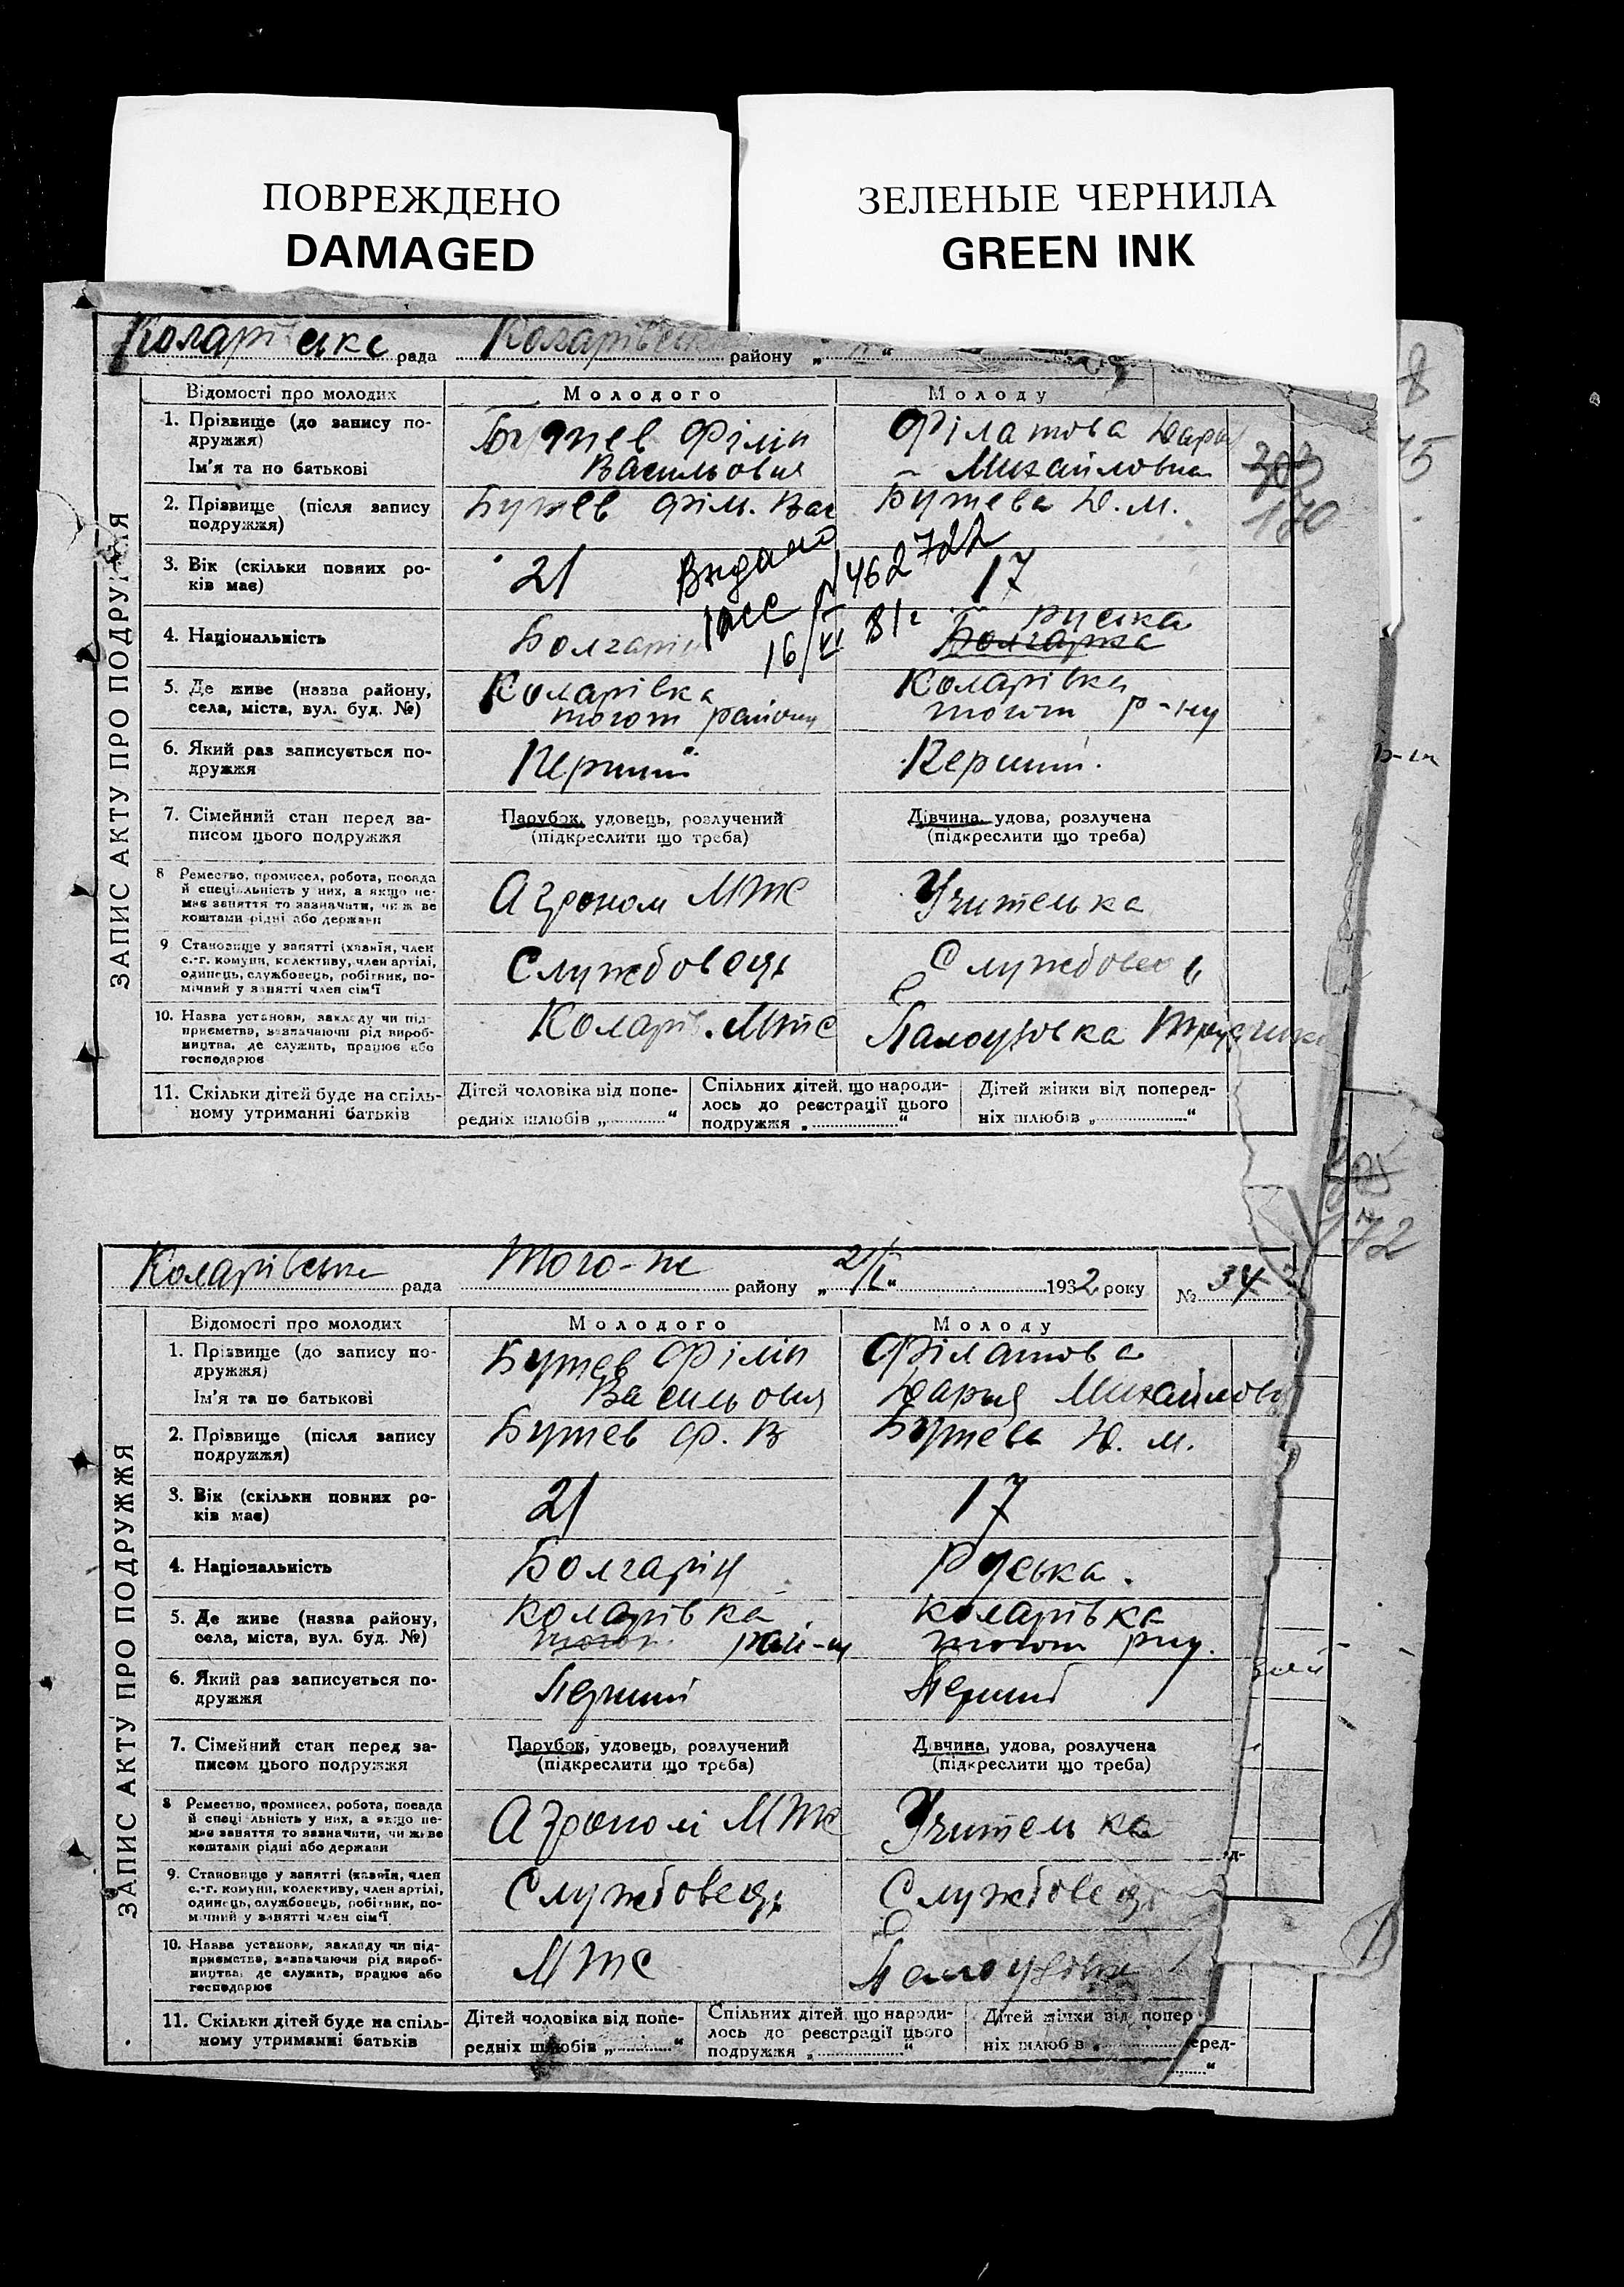 ПОВРЕЖДЕНО
DAMAGED
ЗЕЛЕНЫЕ ЧЕРНИЛА
GREEN INK
Коларівське рада Коларівськ району „ “
ЗАПИС АКТУ ПРО ПОДРУЖЖЯ
Відомості про молодих Молодого Молоду
1. Прізвище (до запису по-
дружжя)
Ім'я та по батькові
Бутев Філіп
Васильович
Філатова Дарья
Михайловна
303
170
2. Прізвище (після запису
подружжя)
Бутев Філ. Вас
Бутева Д. М.
3. Вік (скільки повних ро-
ків має)
21
17
Видано
462722
16/VI 81г
4. Національність
Болгарін
руська
Болгарка
5. Де живе (назва району,
села, міста, вул. буд. №)
Коларівка
тогож району
Коларівка
тогож р-ну
6. Який раз записується по-
дружжя
Перший
Перший.
7. Сімейний стан перед за-
писом цього подружжя
Парубок, удовець, розлучений
(підкреслити що треба)
Дівчина, удова, розлучена
(підкреслити що треба)
8 Ремество, промисел, робота, посада
й спеціальність у них, а якщо не-
має заняття то зазначити, чи живе
коштами рідні або держави
Агроном МТС
Учителька
9 Становище у занятті (хазяїн, член
с.-г. комуни, колективу, член артілі,
одинець, службовець, робітник, по-
мічний у занятті член сім'ї
Службовець
Службовець
10. Назва установи, закладу чи під-
приємства, зазначаючи рід вироб-
ництва, де служить, працює або
господарює
Коларів. МТС
11. Скільки дітей буде на спіль-
ному утриманні батьків
Дітей чоловіка від попе-
редніх шлюбів „ “
Спільних дітей, що народи-
лось до реєстрації цього
подружжя „ “
Дітей жінки від поперед-
ніх шлюбів „ “
72
Коларівська рада Того-ж району „21/I“ 1932 року № 34
ЗАПИС АКТУ ПРО ПОДРУЖЖЯ
Відомості про молодих Молодого Молоду
1. Прізвище (до запису по-
дружжя)
Ім'я та по батькові
Бутев Філіп
Васильович
Філатова
Дарья Михайлов
2. Прізвище (після запису
подружжя)
Бутев Ф. В
Бутева Д. М.
3. Вік (скільки повних ро-
ків має)
21
17
4. Національність
Болгарін
Руська.
5. Де живе (назва району,
села, міста, вул. буд. №)
Коларівка
тогож рай-н
Коларівка
тогож рну.
6. Який раз записується по-
дружжя
Перший
Перший
7. Сімейний стан перед за-
писом цього подружжя
Парубок, удовець, розлучений
(підкреслити що треба)
Дівчина, удова, розлучена
(підкреслити що треба)
8 Ремество, промисел, робота, посада
й спеціальність у них, а якщо не-
має заняття то зазначити, чи живе
коштами рідні або держави
Агроном МТС
Учителька
9. Становище у занятті (хазяїн, член
с.-г. комуни, колективу, член артілі,
одинець, службовець, робітник, по-
мічний у занятті член сім'ї
Службовець
Службовець
10. Назва установи, закладу чи під-
приємства, зазначаючи рід вироб-
ництва, де служить, працює або
господарює
МТС
11. Скільки дітей буде на спіль-
ному утриманні батьків
Дітей чоловіка від попе-
редніх шлюбів „ “
Спільних дітей, що народи-
лось до реєстрації цього
подружжя „ “
Дітей жінки від попер
ніх шлюбів „ еред-
“